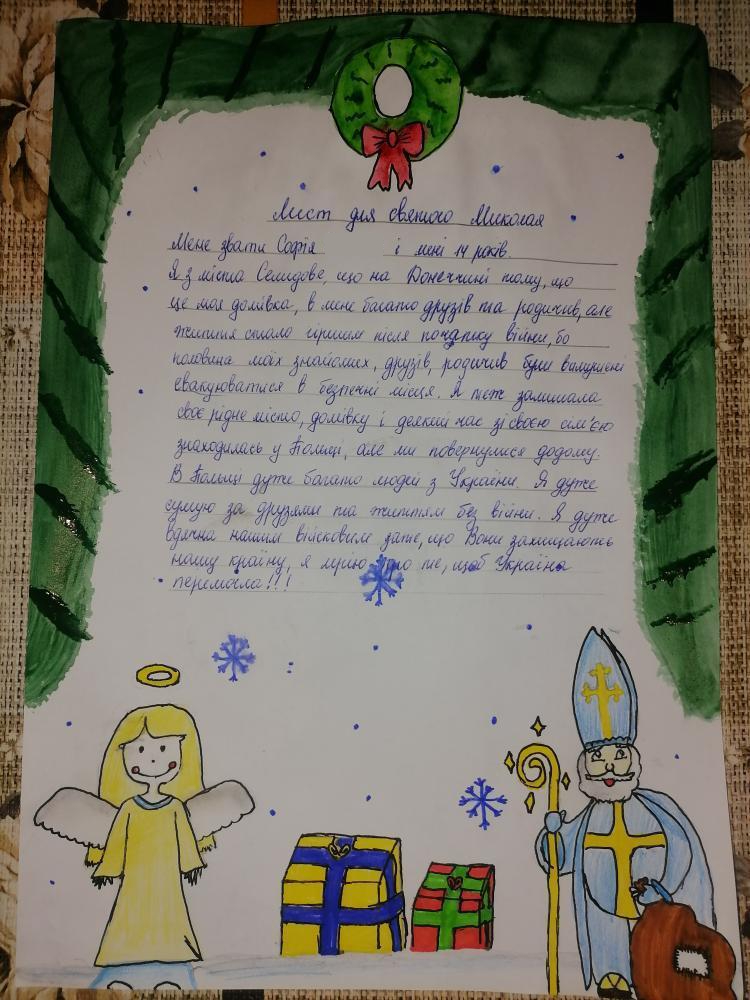 Лист для святого Миколая
Мене звати Софія і мені 14 років.
Я з міста Селидове, що на Донеччині тому, що
це моя домівка, в мене багато друзів та родичив, але
життя стало гіршим після початку війни, бо
половина моїх знайомих, друзів, родичив були вимушені
евакуюватися в безпечні місця. Я теж залишала
своє рідне місто, домівку і деякий час зі своєю сім'єю
знаходилась у Польщі, але ми повернулися додому.
В Польщі дуже багато людей з України. Я дуже
сумую за друзями та життям без війни. Я дуже
вдячна нашим військовим за те, що Вони захищають
нашу країну, я мрію про те, щоб Україна
перемогла!!!